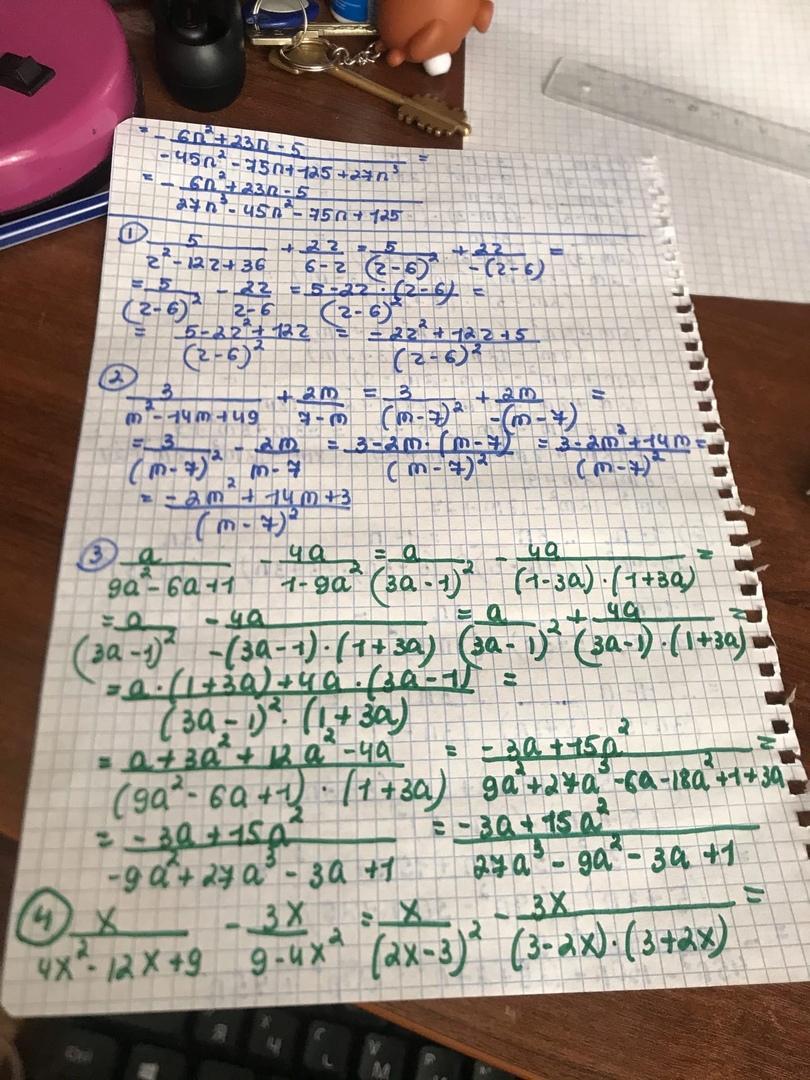 = - (6n² + 23n - 5)/(-45n² - 75n + 125 + 27n³) =
= - (6n² + 23n - 5)/(27n³ - 45n² - 75n + 125)
① 5/(z² - 12z + 36) + 2z/(6 - z) = 5/(z - 6)² + 2z/(-(z - 6)) =
= 5/(z - 6)² - 2z/(z - 6) = (5 - 2z · (z - 6))/(z - 6)² =
= (5 - 2z² + 12z)/(z - 6)² = (-2z² + 12z + 5)/(z - 6)²
② 3/(m² - 14m + 49) + 2m/(7 - m) = 3/(m - 7)² + 2m/(-(m - 7)) =
= 3/(m - 7)² - 2m/(m - 7) = (3 - 2m · (m - 7))/(m - 7)² = (3 - 2m² + 14m)/(m - 7)² =
= (-2m² + 14m + 3)/(m - 7)²
③ a/(9a² - 6a + 1) - 4a/(1 - 9a²) = a/(3a - 1)² - 4a/((1 - 3a) · (1 + 3a)) =
= a/(3a - 1)² - 4a/(-(3a - 1) · (1 + 3a)) = a/(3a - 1)² + 4a/((3a - 1) · (1 + 3a)) =
= (a · (1 + 3a) + 4a · (3a - 1))/((3a - 1)² · (1 + 3a)) =
= (a + 3a² + 12a² - 4a)/((9a² - 6a + 1) · (1 + 3a)) = (-3a + 15a²)/(9a² + 27a³ - 6a - 18a² + 1 + 3a) =
= (-3a + 15a²)/(-9a² + 27a³ - 3a + 1) = (-3a + 15a²)/(27a³ - 9a² - 3a + 1)
④ x/(4x² - 12x + 9) - 3x/(9 - 4x²) = x/(2x - 3)² - 3x/((3 - 2x) · (3 + 2x)) =